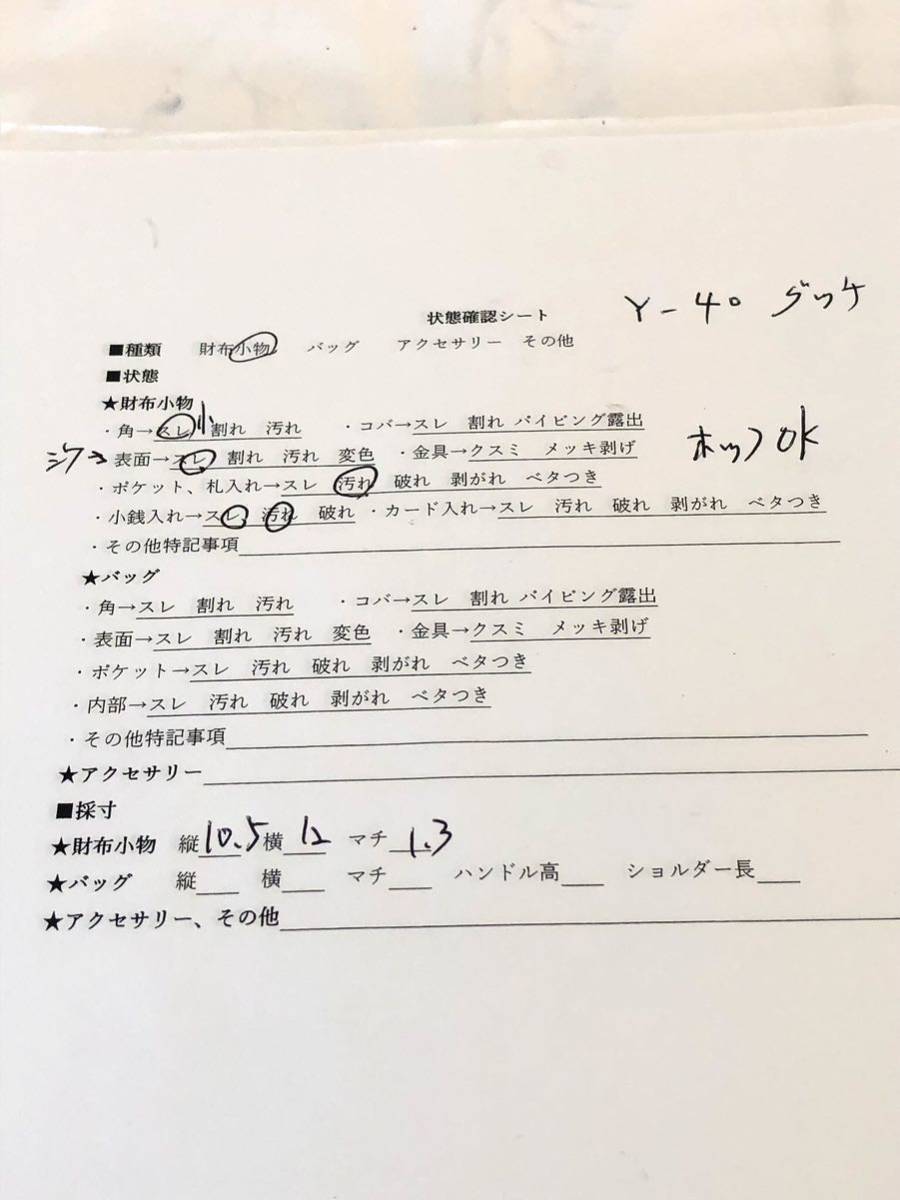 状態確認シート Y-40 グッケ
■種類 財布小物 バッグ アクセサリー その他
■状態
★財布小物
・角→スレ小 割れ 汚れ ・コバ→スレ 割れ パイピング露出
シワ 表面→スレ 割れ 汚れ 変色 ・金具→クスミ メッキ剥げ ホックOK
・ポケット、札入れ→スレ 汚れ 破れ 剥がれ ベタつき
・小銭入れ→スレ 汚れ 破れ ・カード入れ→スレ 汚れ 破れ 剥がれ ベタつき
・その他特記事項
★バッグ
・角→スレ 割れ 汚れ ・コバ→スレ 割れ パイピング露出
・表面→スレ 割れ 汚れ 変色 ・金具→クスミ メッキ剥げ
・ポケット→スレ 汚れ 破れ 剥がれ ベタつき
・内部→スレ 汚れ 破れ 剥がれ ベタつき
・その他特記事項
★アクセサリー
■採寸
★財布小物 縦10.5 横12 マチ1.3
★バッグ 縦 横 マチ ハンドル高 ショルダー長
★アクセサリー、その他